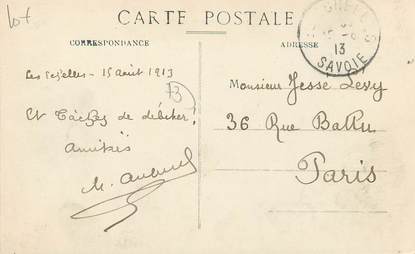 lot
CARTE POSTALE
CORRESPONDANCE
ADRESSE
13
SAVOIE
Les - 15 août 1913
73
Monsieur Jesse Levy
Et tâchez de
36 Rue Ballu
amitiés
Paris
M.